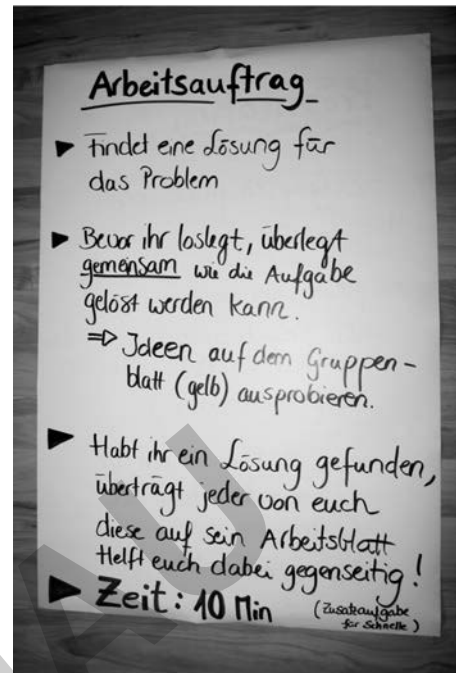 Arbeitsauftrag
► Findet eine Lösung für
das Problem
► Bevor ihr loslegt, überlegt
gemeinsam wie die Aufgabe
gelöst werden kann.
⇒ Ideen auf dem Gruppen-
blatt (gelb) ausprobieren.
► Habt ihr ein Lösung gefunden,
überträgt jeder von euch
diese auf sein Arbeitsblatt
Helft euch dabei gegenseitig!
► Zeit: 10 Min
(Zusatzaufgabe
für Schnelle)